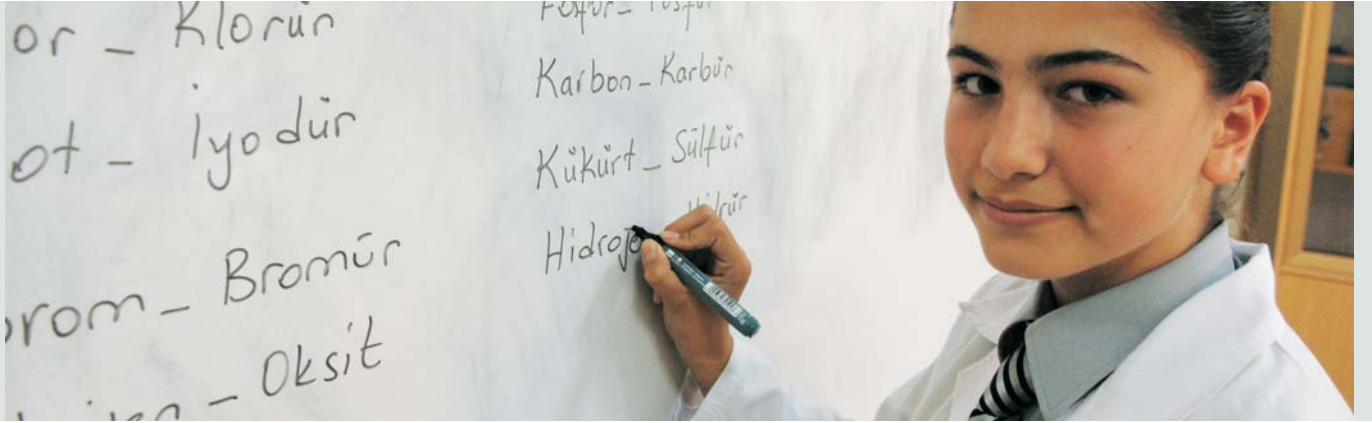 or - Klorür
ot - İyodür
rom - Bromür
- Oksit
Fosfor - Fosfür
Karbon - Karbür
Kükürt - Sülfür
Hidroje